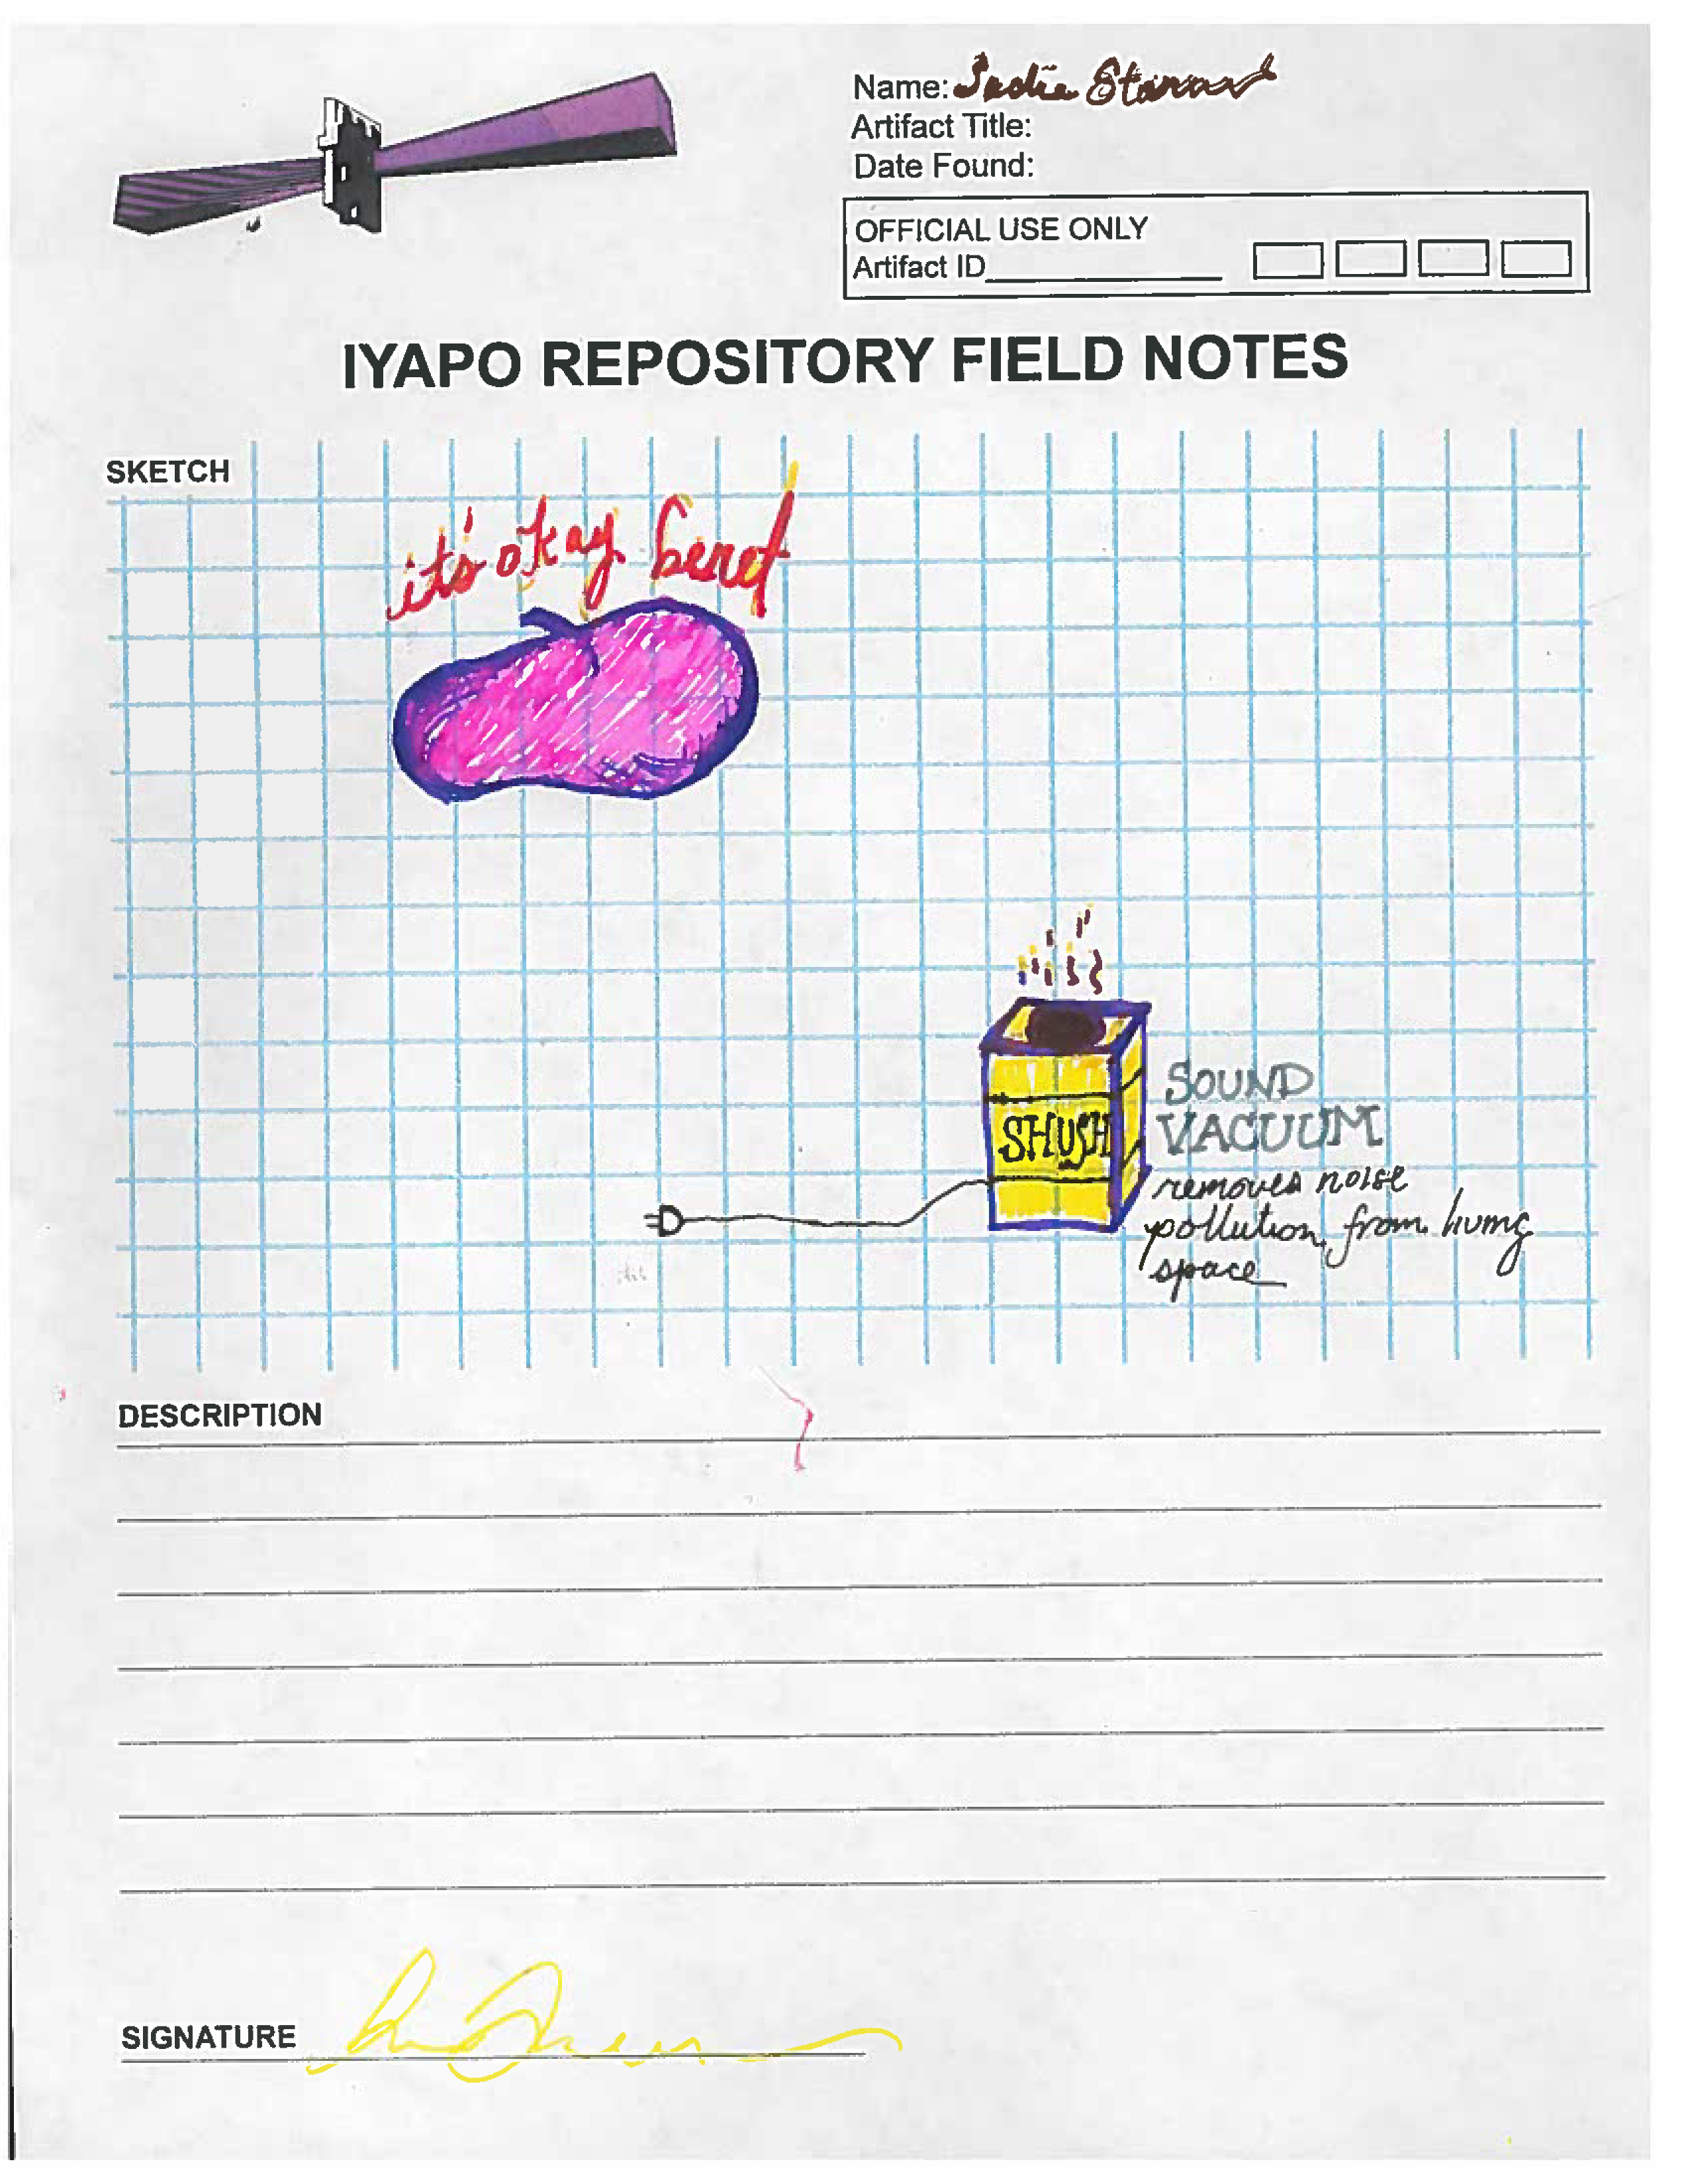 Name:
Artifact Title:
Date Found:
OFFICIAL USE ONLY
Artifact ID
IYAPO REPOSITORY FIELD NOTES
SKETCH
it's okay
SHUSH
SOUND
VACUUM
removes noise
pollution from living
space
DESCRIPTION
SIGNATURE